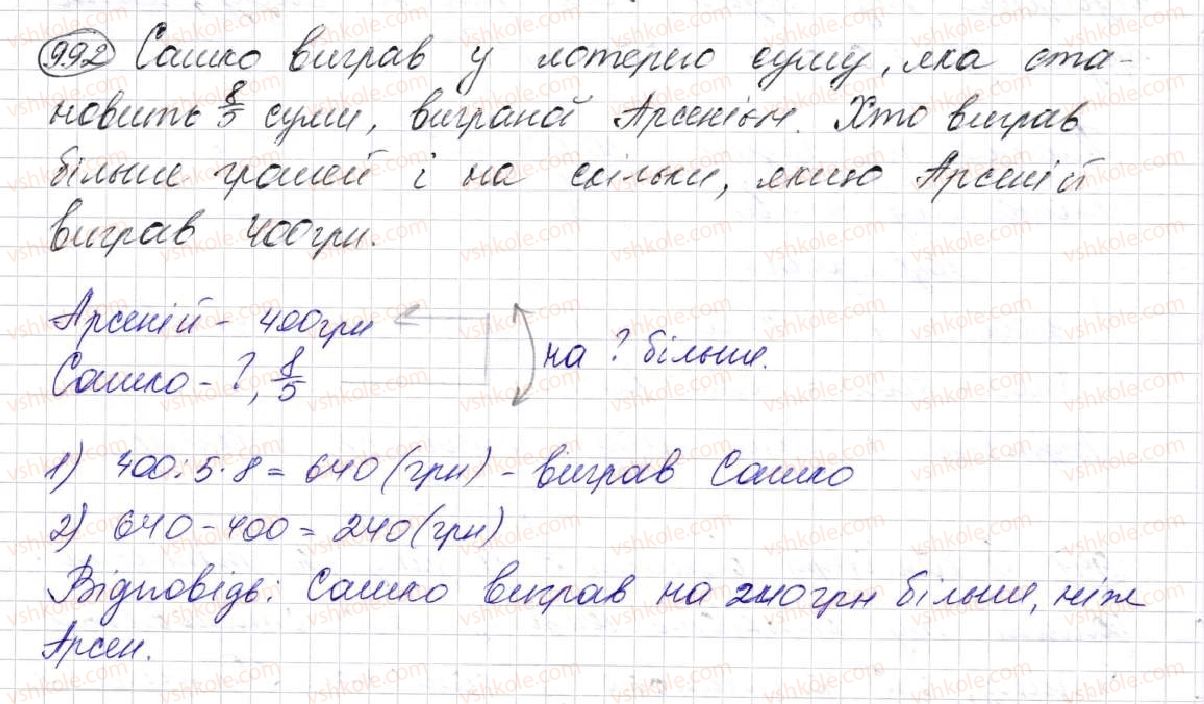 992 Сашко виграв у лотерею суму, яка ста-
новить 8/5 суми, виграної Арсенієм. Хто виграв
більше грошей і на скільки, якщо Арсеній
виграв 400грн.
Арсеній - 400грн
Сашко - ?, 8/5
на ? більше.
1) 400:5·8=640(грн) - виграв Сашко
2) 640-400=240(грн)
Відповідь: Сашко виграв на 240грн більше, ніж
Арсен.